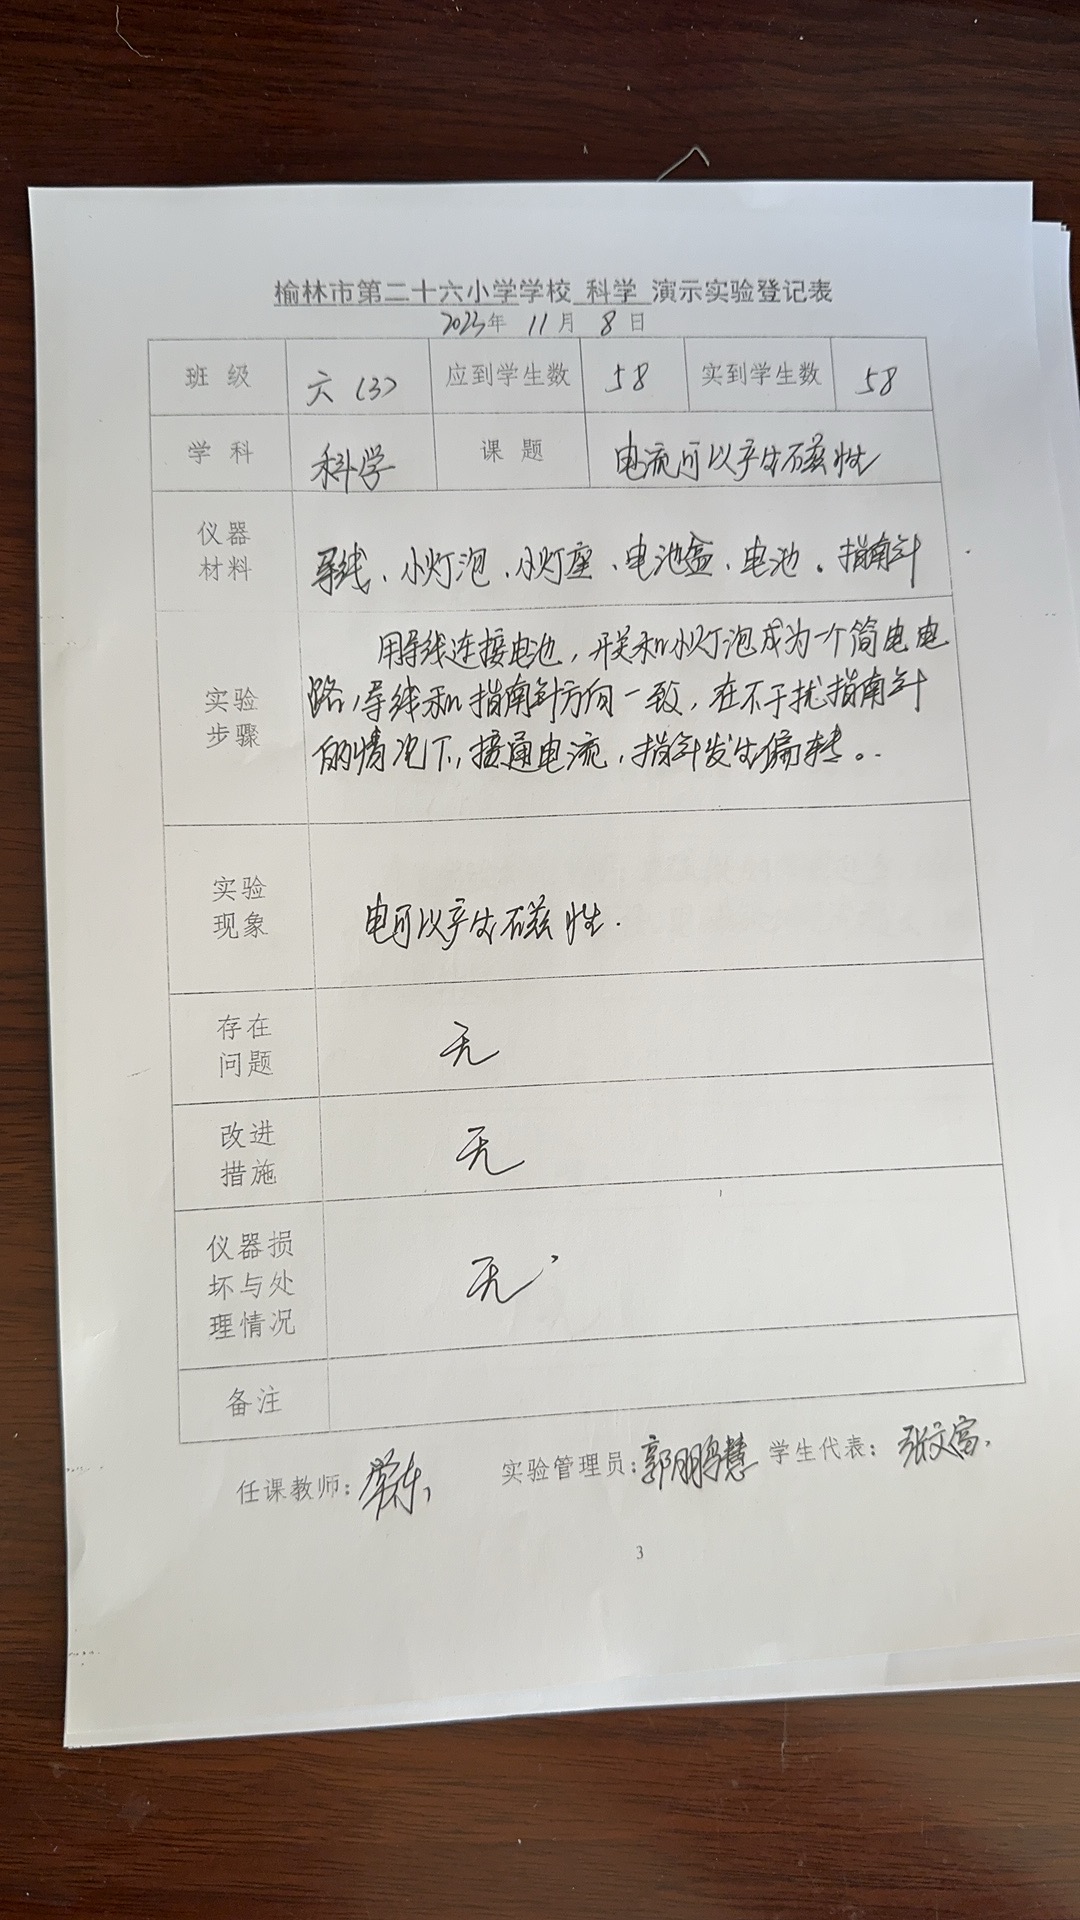 榆林市第二十六小学学校 科学 演示实验登记表
2023年 11月 8日
班级 六(3) 应到学生数 58 实到学生数 58
学科 科学 课题 电流可以产生磁性
仪器
材料
导线、小灯泡、小灯座、电池盒、电池。指南针
实验
步骤
用导线连接电池,开关和小灯泡成为一个简电电
路,导线和指南针方向一致,在不干扰指南针
的情况下,接通电流,指针发生偏转。
实验
现象
电可以产生磁性.
存在
问题
无
改进
措施
无
仪器损
坏与处
理情况
无
备注
任课教师: 实验管理员:郭鹏慧 学生代表:张文富
3